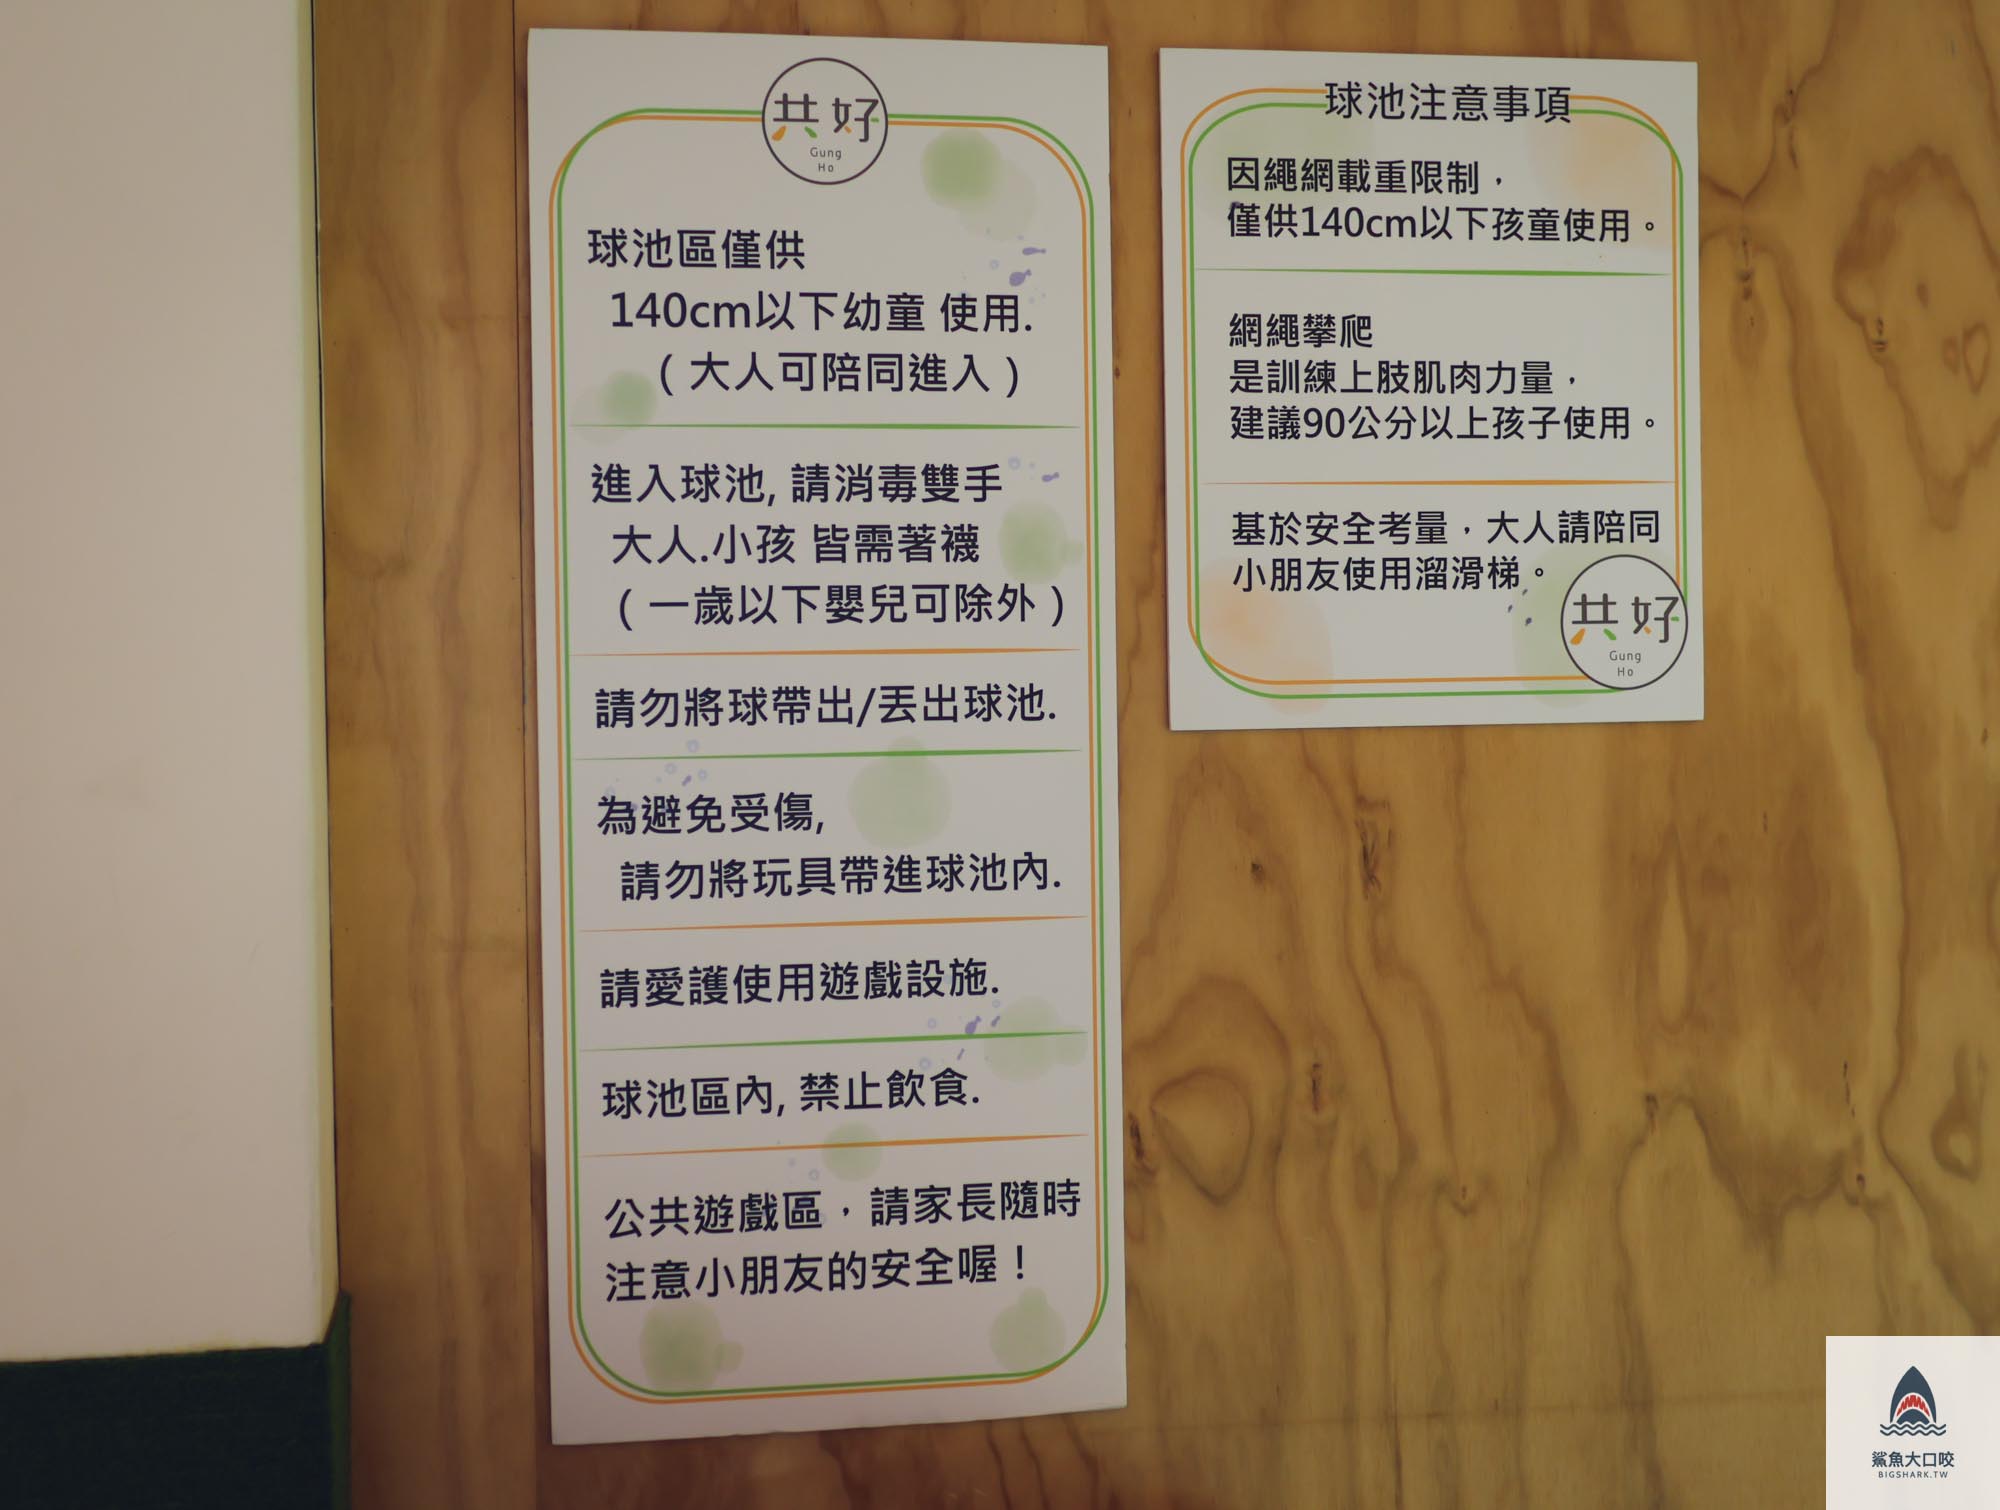 共好
Gung
Ho
球池區僅供
140cm以下幼童 使用.
( 大人可陪同進入 )
進入球池, 請消毒雙手
大人.小孩 皆需著襪
( 一歲以下嬰兒可除外 )
請勿將球帶出/丟出球池.
為避免受傷,
請勿將玩具帶進球池內.
請愛護使用遊戲設施.
球池區內, 禁止飲食.
公共遊戲區，請家長隨時
注意小朋友的安全喔！
球池注意事項
因繩網載重限制，
僅供140cm以下孩童使用。
網繩攀爬
是訓練上肢肌肉力量，
建議90公分以上孩子使用。
基於安全考量，大人請陪同
小朋友使用溜滑梯。
共好
Gung
Ho
鯊魚大口咬
BIGSHARK.TW